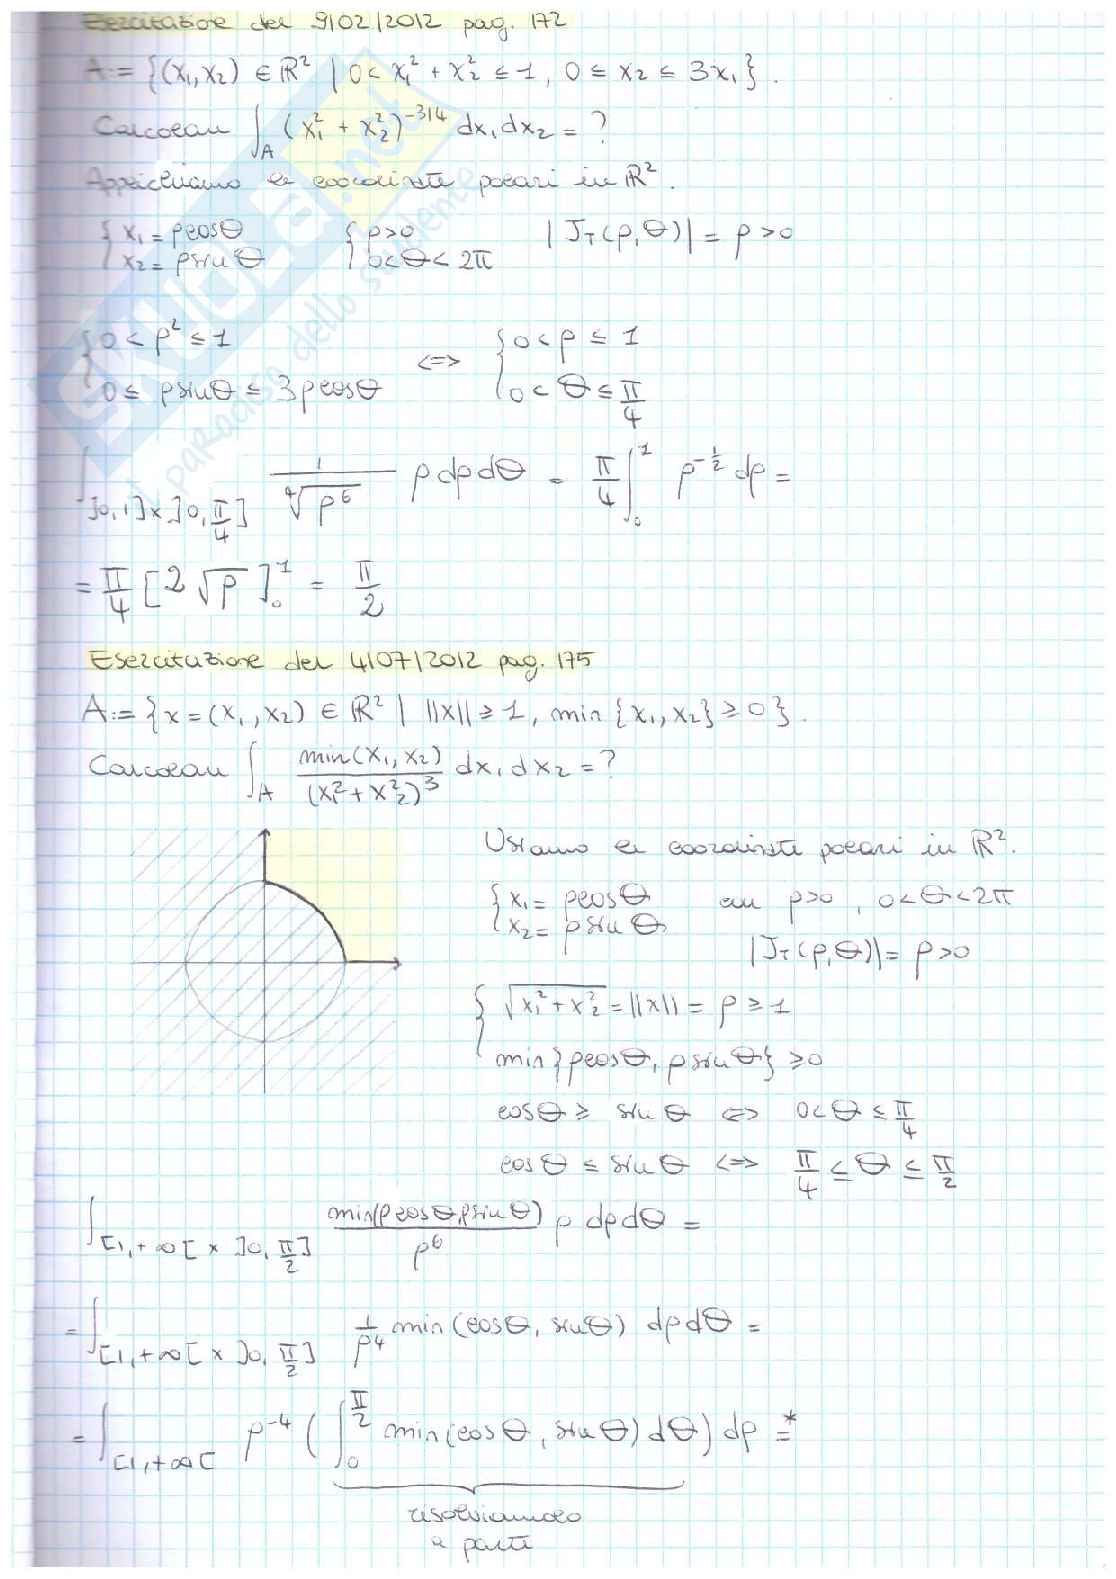 Esercitazione del 9/02/2012 pag. 172
A:= {(x₁,x₂) ∈ ℝ² | 0< x₁² + x₂² ≤ 1, 0 ≤ x₂ ≤ 3x₁}.
Calcolare ∫_A (x₁² + x₂²)^{-3/4} dx₁dx₂ = ?
Applichiamo le coordinate polari in ℝ².
{ x₁ = ρcosθ { ρ>0 |J_T(ρ,θ)| = ρ>0
{ x₂ = ρsinθ { 0<θ<2π
{ 0<ρ² ≤ 1 ⇔ { 0<ρ ≤ 1
{ 0 ≤ ρsinθ ≤ 3ρcosθ { 0<θ ≤ π/4
∫_{]0,1]×]0,π/4]} 1/⁴√ρ⁶ ρ dρdθ = π/4 ∫₀¹ ρ^{-1/2} dρ =
= π/4 [2√ρ]₀¹ = π/2
Esercitazione del 4/07/2012 pag. 175
A:= {x=(x₁,x₂) ∈ ℝ² | ||x|| ≥ 1, min{x₁,x₂} ≥ 0}.
Calcolare ∫_A min(x₁,x₂)/(x₁²+x₂²)³ dx₁dx₂ = ?
Usiamo le coordinate polari in ℝ².
{ x₁ = ρcosθ con ρ>0, 0<θ<2π
{ x₂ = ρsinθ
|J_T(ρ,θ)| = ρ>0
{ √x₁²+x₂² = ||x|| = ρ ≥ 1
{ min{ρcosθ, ρsinθ} ≥ 0
cosθ ≥ sinθ ⇔ 0<θ ≤ π/4
cosθ ≤ sinθ ⇔ π/4 ≤ θ ≤ π/2
∫_{[1,+∞[ × ]0,π/2]} min(ρcosθ,ρsinθ)/ρ⁶ ρ dρdθ =
= ∫_{[1,+∞[ × ]0,π/2]} 1/ρ⁴ min(cosθ, sinθ) dρdθ =
= ∫_{[1,+∞[} ρ⁻⁴ (∫₀^{π/2} min(cosθ, sinθ) dθ) dρ =*
risolviamolo
a parte
SKUOLA.net
il paradiso dello studente